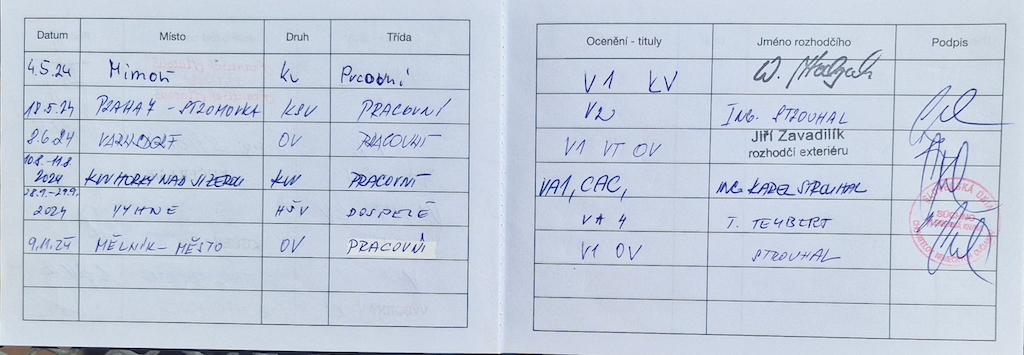 Datum Místo Druh Třída Ocenění - tituly Jméno rozhodčího Podpis
4.5.24 Mimoň KV Pracovní V1 KV
18.5.24 PRAHA 7 - STROMOVKA KSV PRACOVNÍ VD ING. STROUHAL
8.6.24 VARNSDORF OV PRACOVNÍ V1 VT OV Jiří Zavadilík
rozhodčí exteriéru
10.8.-11.8.
2024 KVV HORKY NAD JIZEROU KVV PRACOVNÍ VA1, CAC, ING. KAREL STROUHAL
28.9.-29.9.
2024 VYHNE HŠV DOSPELÉ VA 4 T. TEYBERT
9.11.24 MĚLNÍK - MĚSTO OV PRACOVNÍ V1 OV STROUHAL